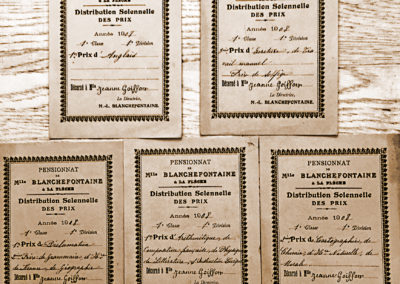 A LA FLÈCHE
Distribution Solennelle
DES PRIX
Année 1908
1e Classe 1e Division
1er Prix d'Anglais
Décerné à Mlle Jeanne Goiffon
La Directrice,
M.-L. BLANCHEFONTAINE.
Distribution Solennelle
DES PRIX
Année 1908.
1e Classe 1e Division
Prix de
vail manuel
Prix de
Décerné à Mlle Jeanne Goiffon
La Directrice,
M.-L. BLANCHEFONTAINE.
PENSIONNAT
DE
Mlle BLANCHEFONTAINE
A LA FLÈCHE
Distribution Solennelle
DES PRIX
Année 1908.
1e Classe 1e Division
1er Prix de Déclamation
Prix de grammaire d'
de géographie
Décerné à Mlle Jeanne Goiffon
PENSIONNAT
DE
Mlle BLANCHEFONTAINE
A LA FLÈCHE
Distribution Solennelle
DES PRIX
Année 1908.
1e Classe 1e Division
1er Prix d'Arithmétique, de
Composition française, de Physique
de Littérature, d'Instruction
Décerné à Mlle Jeanne Goiffon
PENSIONNAT
DE
Mlle BLANCHEFONTAINE
A LA FLÈCHE
Distribution Solennelle
DES PRIX
Année 1908.
1e Classe 1e Division
Prix de Cartographie, de
Chimie, d' Naturelle, de
Morale
Décerné à Mlle Jeanne Goiffon